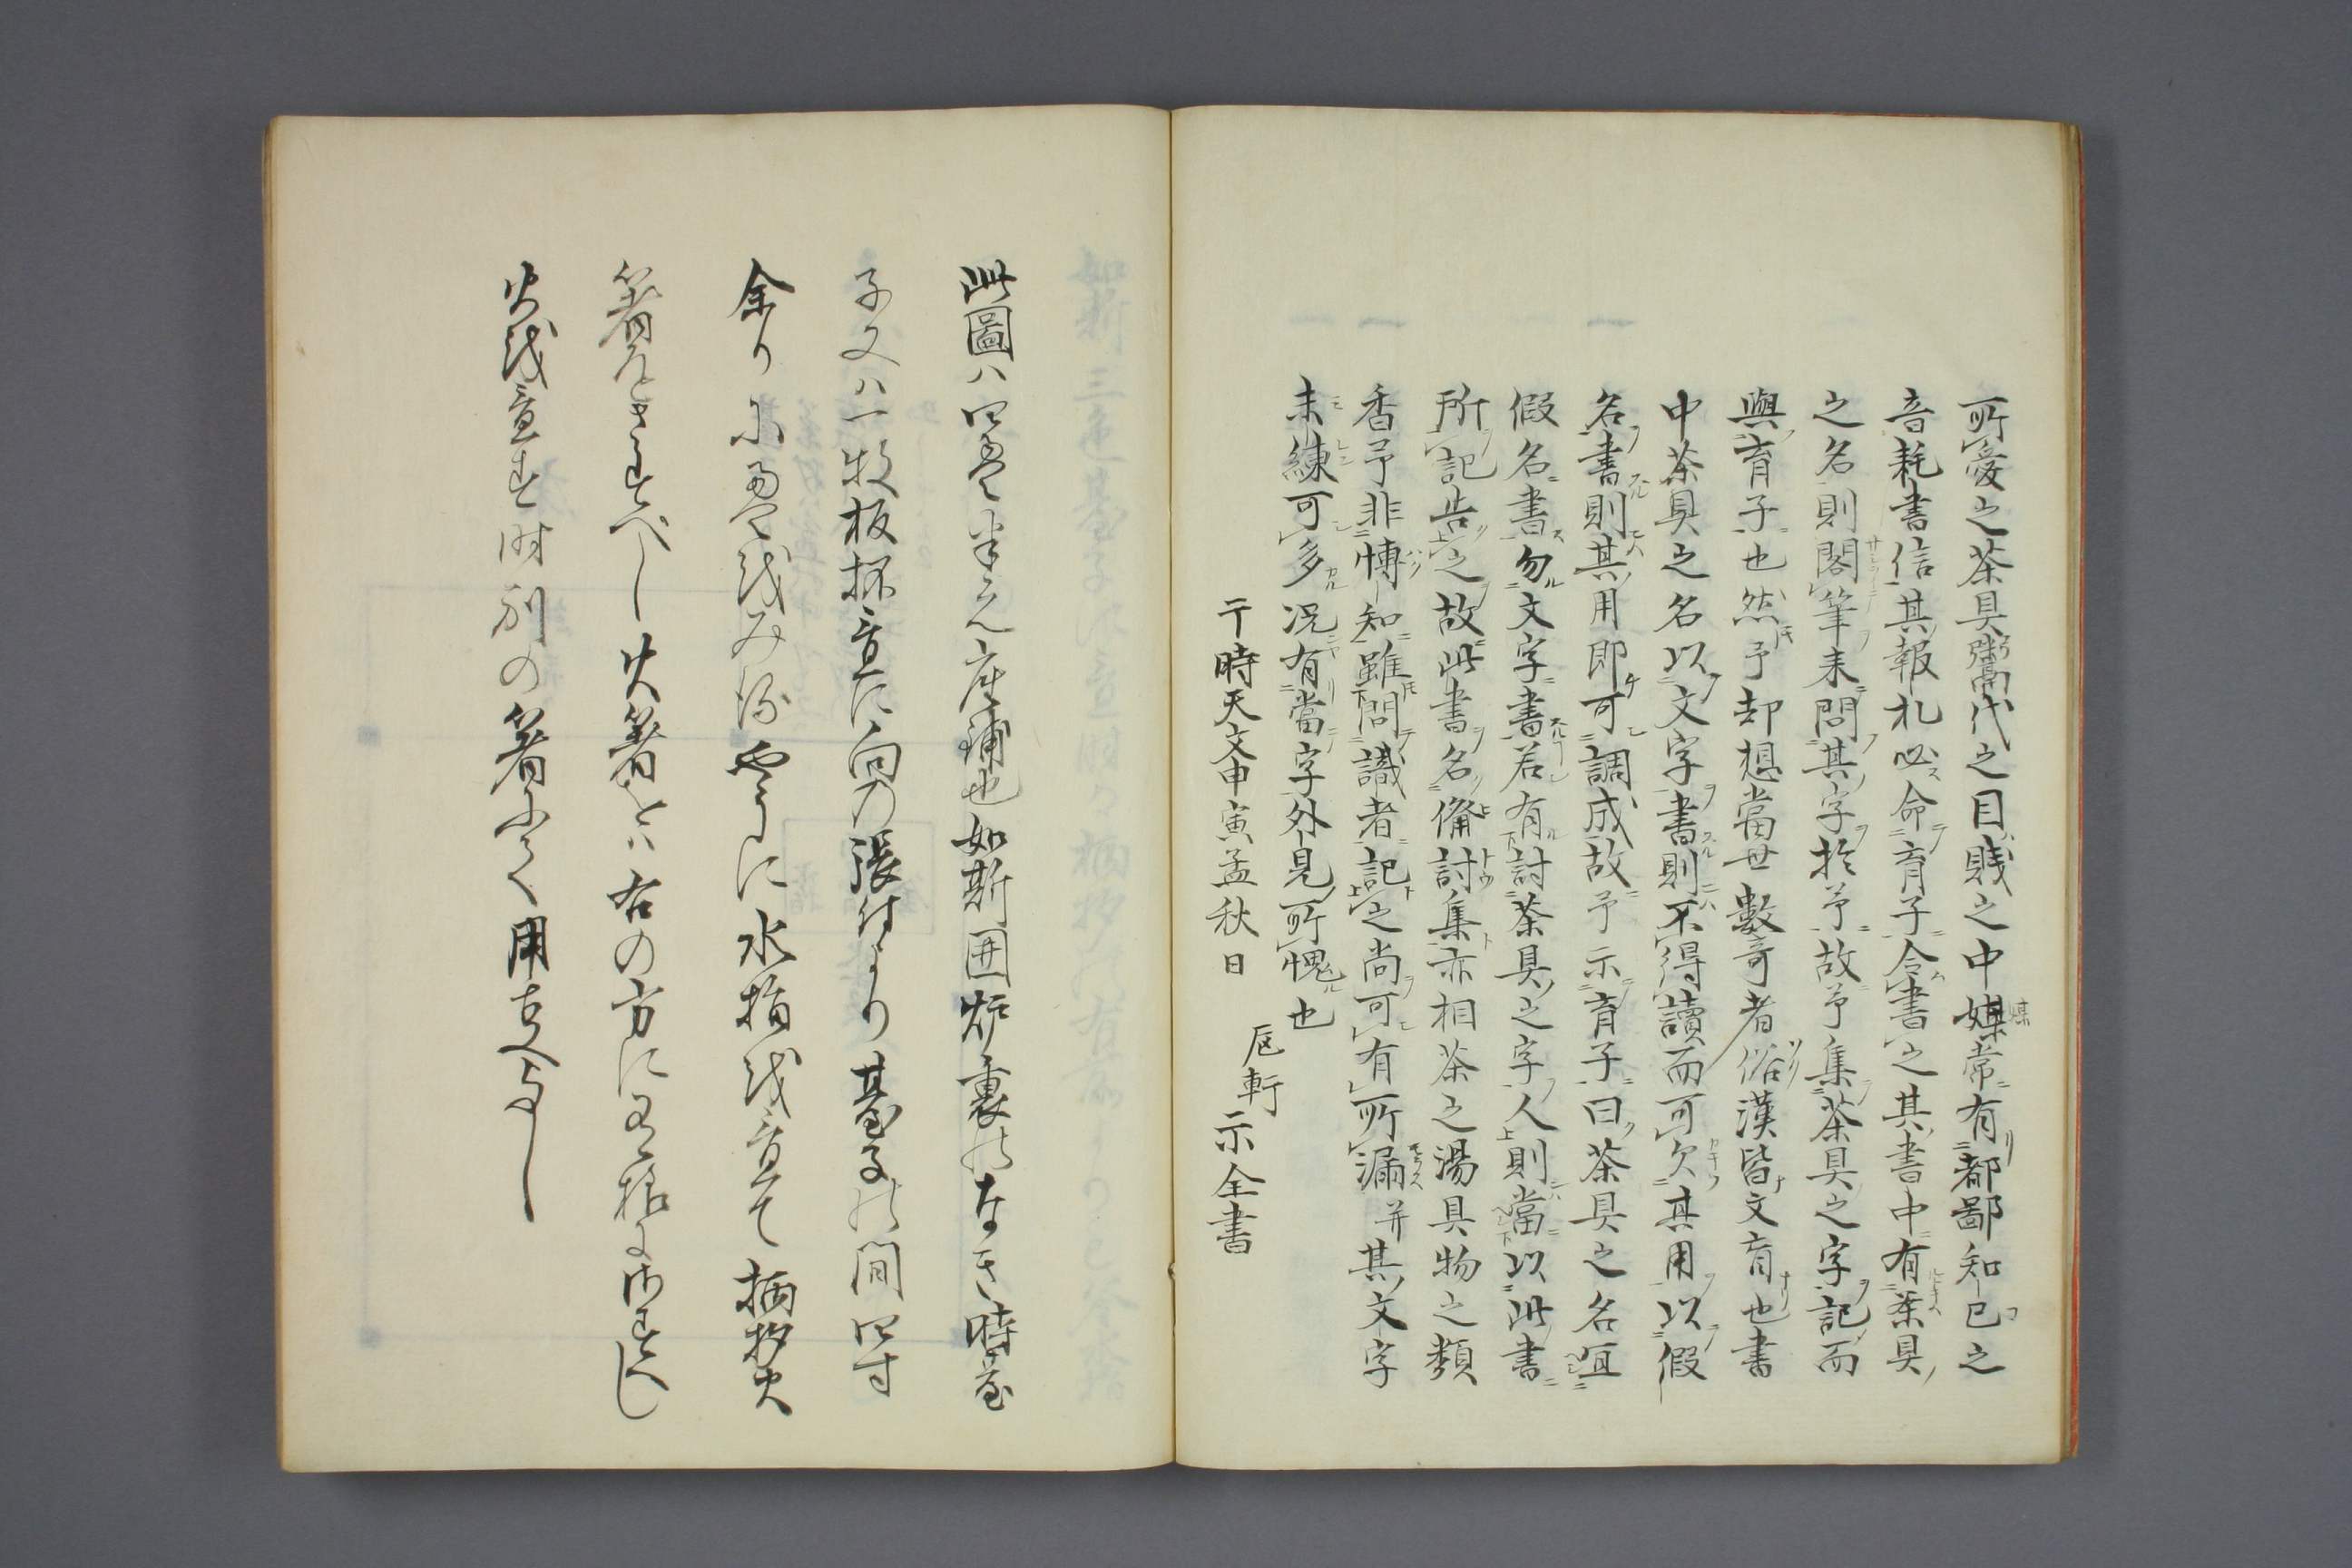 所愛之茶具鬻代之目賎之中媒常有都鄙知已之
音耗書信其報札必命育子令書之其書中有茶具
之名則閣筆来問其字於予故予集茶具之字記而
與育子也然予却想當世數奇者俗漢皆文盲也書
中茶具之名以文字書則不得讀而可欠其用以假
名書則其用即可調成故予示育子曰茶具之名宜
假名書勿文字書若有討茶具之字人則當以此書
所記告之故此書名備討集亦相茶之湯具物之類
香予非慱知雖問識者記之尚可有所漏并其文字
未練可多况有當字外見所愧也
于時天文申寅孟秋日
㞐軒 示全書
此圖ハ四畳半之座鋪也如斯囲炉裏のなき時台
子又ハ一枚板抔置に向の張付より臺子の間四寸
余りに畳をみ渡やうに水指を置て柄杓火
箸をさすべし火箸をハ右の方に
火を直す時別の箸にて用